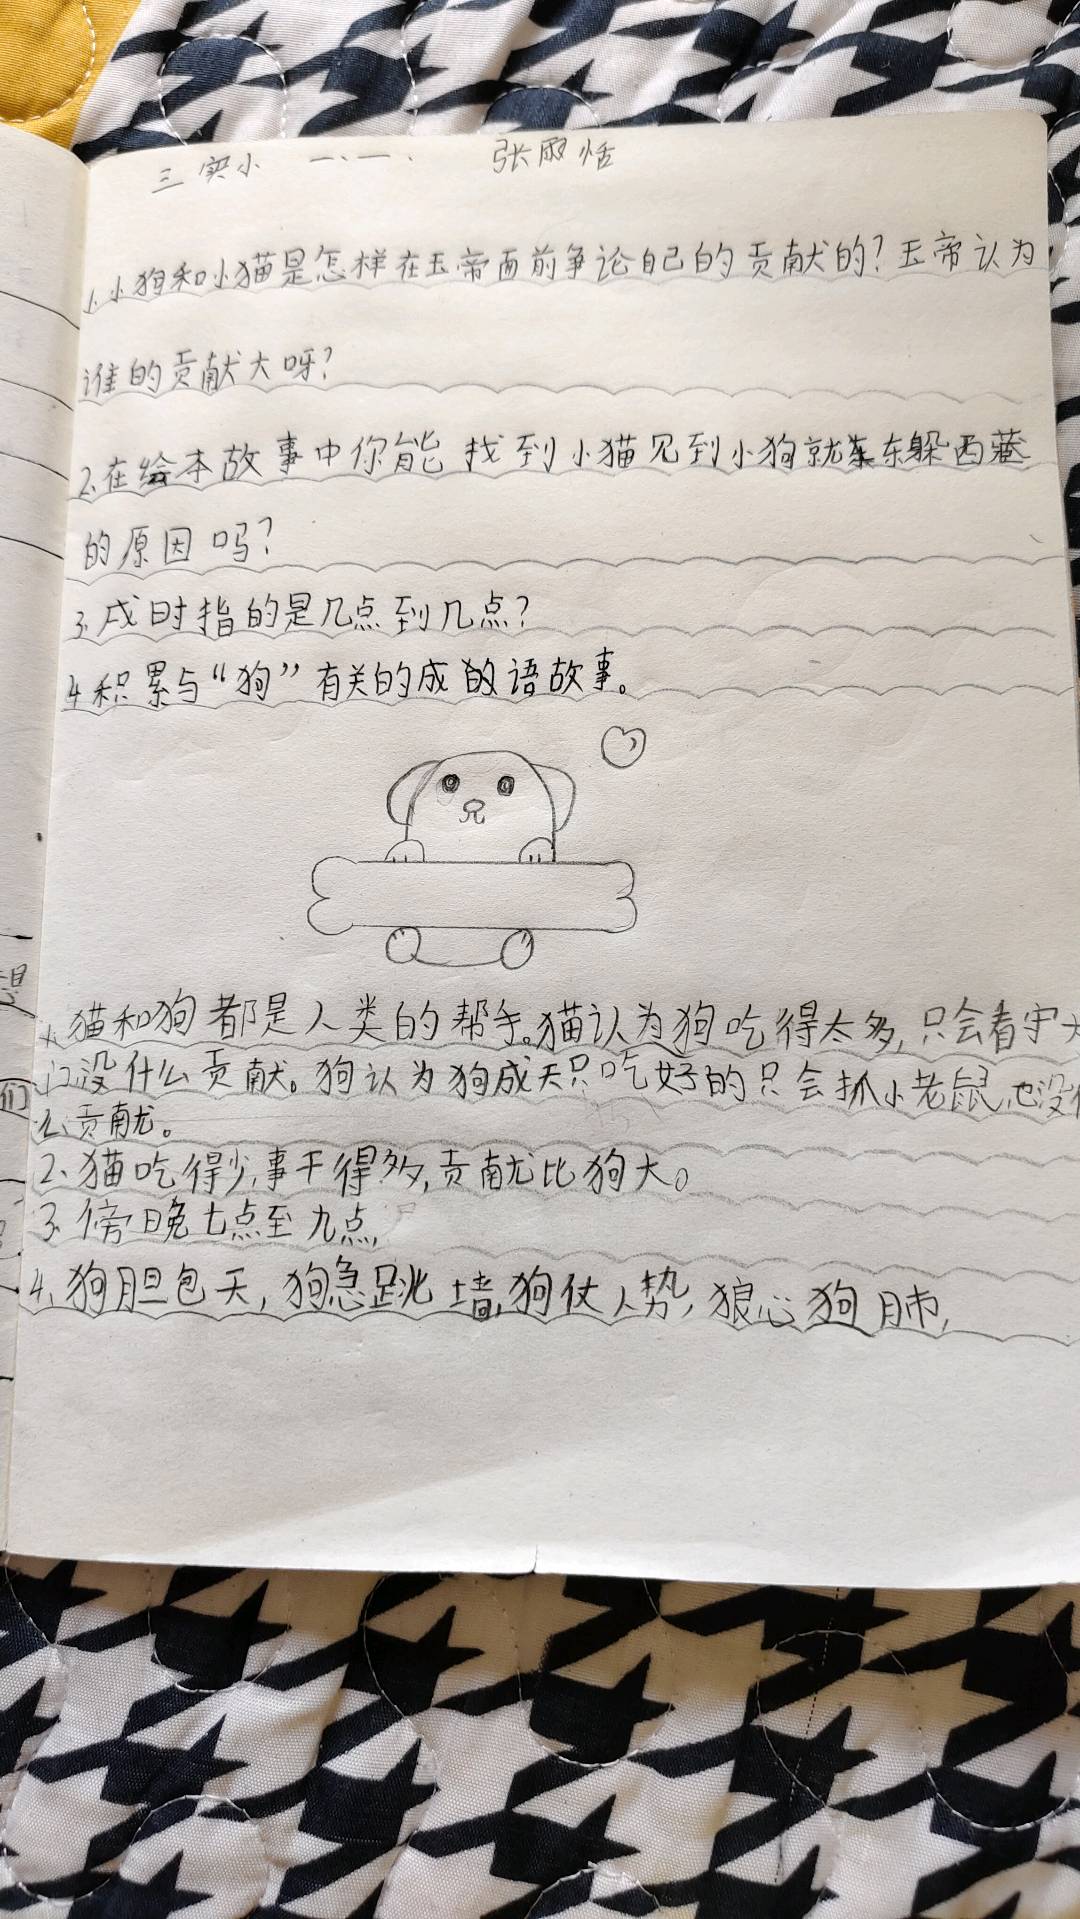 三实小 一、一、 张雨恬
1.小狗和小猫是怎样在玉帝面前争论自己的贡献的?玉帝认为
谁的贡献大呀?
2.在绘本故事中你能找到小猫见到小狗就东躲西藏
的原因吗?
3.戌时指的是几点到几点?
4积累与“狗”有关的成语故事。
1.猫和狗都是人类的帮手。猫认为狗吃得太多,只会看守大
门没什么贡献。狗认为狗成天只吃好的只会抓小老鼠,也没什
么贡献。
2、猫吃得少,事干得多,贡献比狗大。
3.傍晚七点至九点,
4.狗胆包天,狗急跳墙,狗仗人势,狼心狗肺,
们